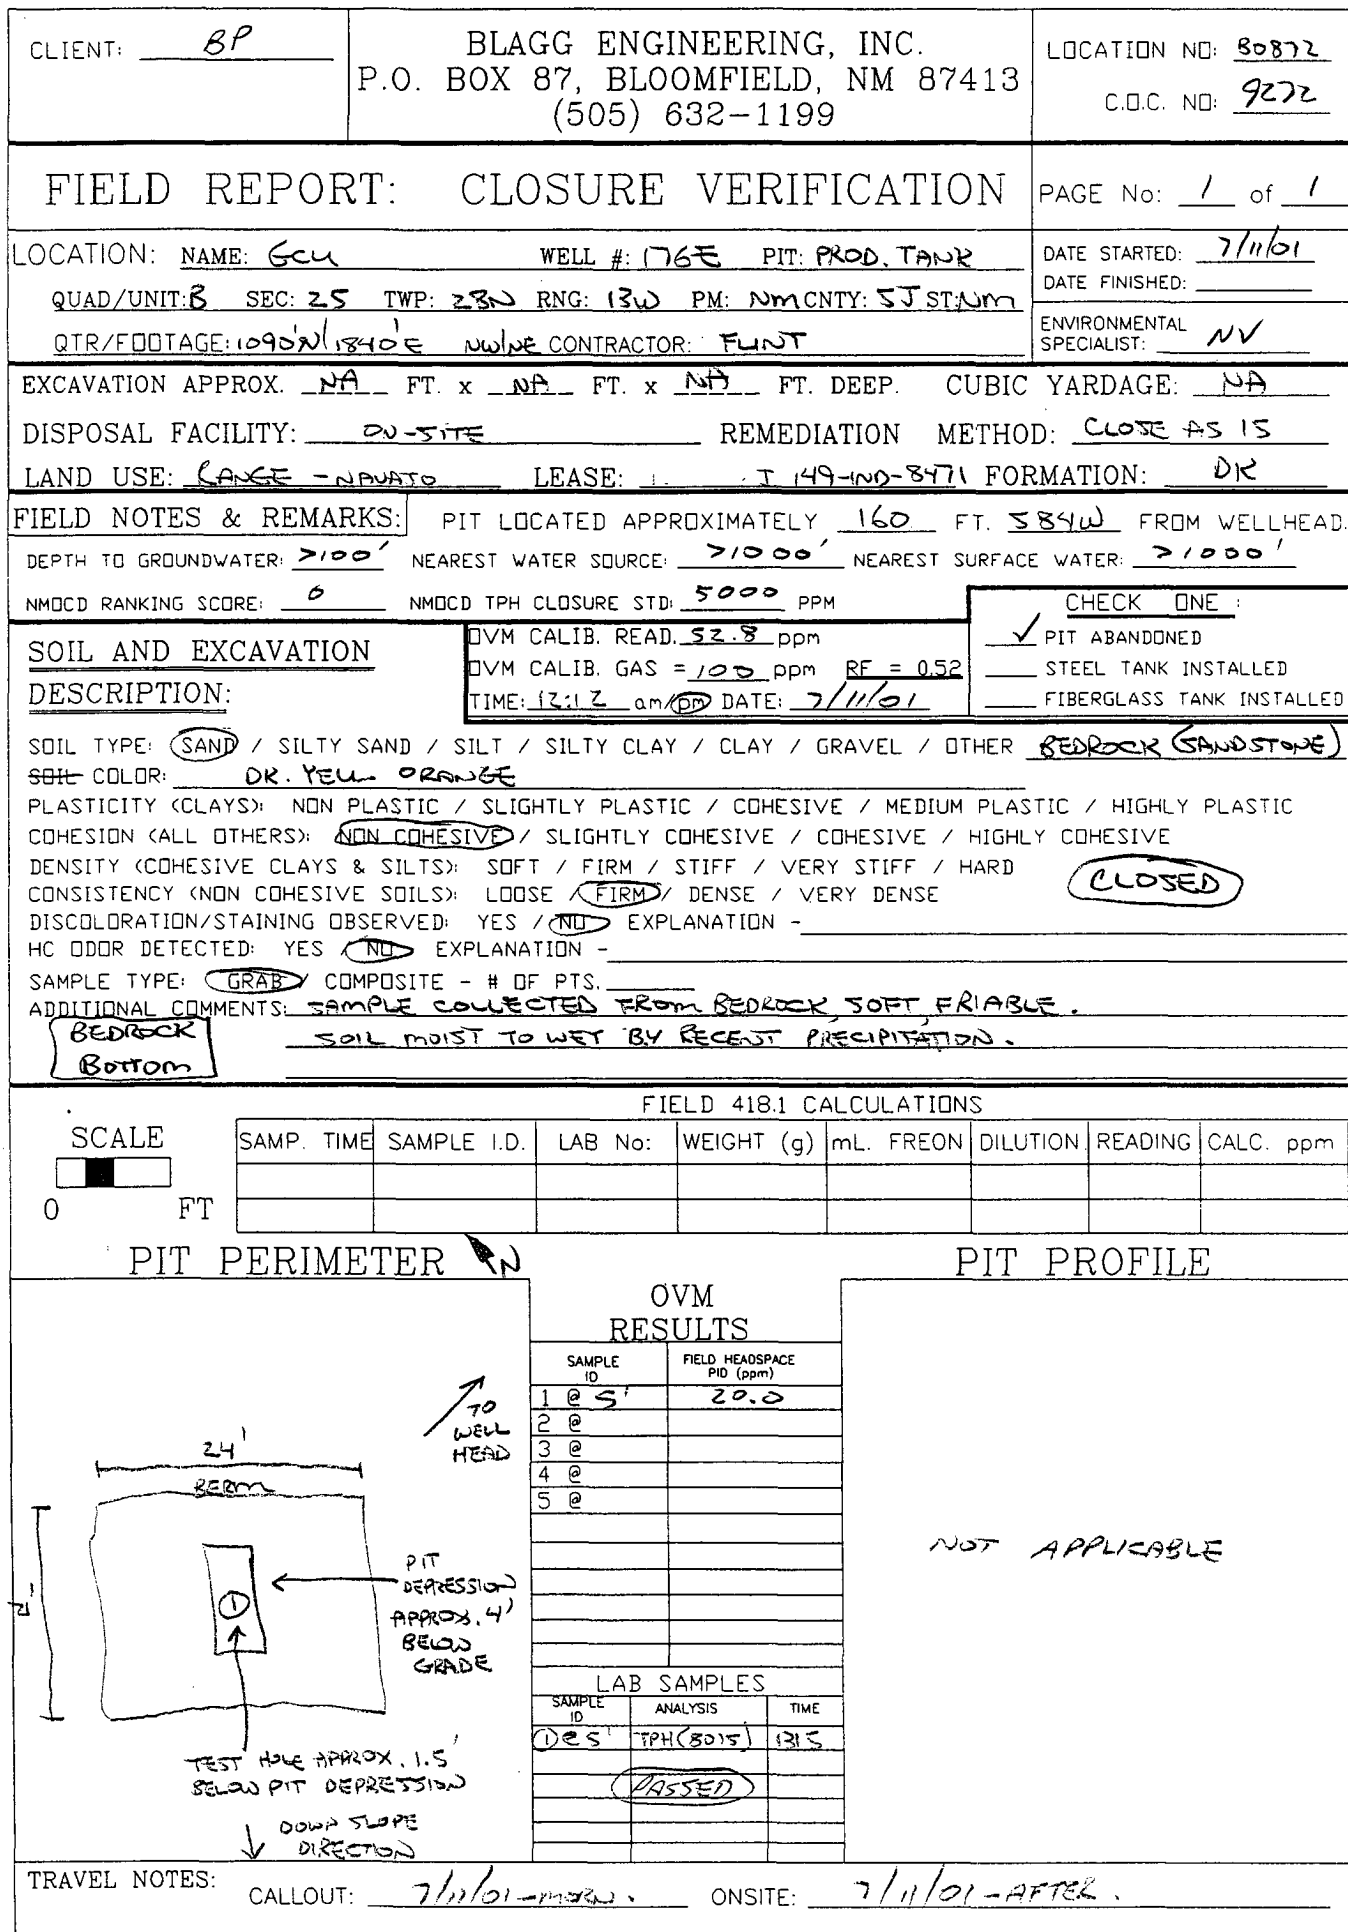 CLIENT: BP
BLAGG ENGINEERING, INC.
P.O. BOX 87, BLOOMFIELD, NM 87413
(505) 632-1199
LOCATION NO: B0872
C.O.C. NO: 9272
FIELD REPORT: CLOSURE VERIFICATION
PAGE No: 1 of 1
LOCATION: NAME: GCU WELL #: 176E PIT: PROD. TANK
QUAD/UNIT: B SEC: 25 TWP: 28N RNG: 13W PM: NM CNTY: SJ ST: NM
QTR/FOOTAGE: 1090'N/1840'E NW/NE CONTRACTOR: FLINT
DATE STARTED: 7/11/01
DATE FINISHED:
ENVIRONMENTAL
SPECIALIST: NV
EXCAVATION APPROX. NA FT. x NA FT. x NA FT. DEEP. CUBIC YARDAGE: NA
DISPOSAL FACILITY: ON-SITE REMEDIATION METHOD: CLOSE AS IS
LAND USE: RANGE - NAVAJO LEASE: I 149-IND-8471 FORMATION: DK
FIELD NOTES & REMARKS: PIT LOCATED APPROXIMATELY 160 FT. S84W FROM WELLHEAD.
DEPTH TO GROUNDWATER: >100' NEAREST WATER SOURCE: >1000' NEAREST SURFACE WATER: >1000'
NMOCD RANKING SCORE: 0 NMOCD TPH CLOSURE STD: 5000 PPM
CHECK ONE :
✓ PIT ABANDONED
STEEL TANK INSTALLED
FIBERGLASS TANK INSTALLED
SOIL AND EXCAVATION
DESCRIPTION:
OVM CALIB. READ. 52.8 ppm
OVM CALIB. GAS = 100 ppm RF = 0.52
TIME: 12:12 am/pm DATE: 7/11/01
SOIL TYPE: SAND / SILTY SAND / SILT / SILTY CLAY / CLAY / GRAVEL / OTHER BEDROCK (SANDSTONE)
SOIL COLOR: DK. YELL. ORANGE
PLASTICITY (CLAYS): NON PLASTIC / SLIGHTLY PLASTIC / COHESIVE / MEDIUM PLASTIC / HIGHLY PLASTIC
COHESION (ALL OTHERS): NON COHESIVE / SLIGHTLY COHESIVE / COHESIVE / HIGHLY COHESIVE
DENSITY (COHESIVE CLAYS & SILTS): SOFT / FIRM / STIFF / VERY STIFF / HARD
CLOSED
CONSISTENCY (NON COHESIVE SOILS): LOOSE / FIRM / DENSE / VERY DENSE
DISCOLORATION/STAINING OBSERVED: YES / NO EXPLANATION -
HC ODOR DETECTED: YES / NO EXPLANATION -
SAMPLE TYPE: GRAB / COMPOSITE - # OF PTS.
ADDITIONAL COMMENTS: SAMPLE COLLECTED FROM BEDROCK, SOFT, FRIABLE.
SOIL MOIST TO WET BY RECENT PRECIPITATION.
BEDROCK
BOTTOM
FIELD 418.1 CALCULATIONS
SCALE
0 FT
SAMP. TIME SAMPLE I.D. LAB No: WEIGHT (g) mL. FREON DILUTION READING CALC. ppm
PIT PERIMETER N
PIT PROFILE
OVM
RESULTS
SAMPLE ID FIELD HEADSPACE PID (ppm)
1 @ 5' 20.0
2 @
3 @
4 @
5 @
TO
WELL
HEAD
24'
BERM
PIT
DEPRESSION
APPROX. 4'
BELOW
GRADE
1
TEST HOLE APPROX. 1.5'
BELOW PIT DEPRESSION
DOWN SLOPE
DIRECTION
NOT APPLICABLE
LAB SAMPLES
SAMPLE ID ANALYSIS TIME
① @ 5' TPH (8015) 1315
PASSED
TRAVEL NOTES:
CALLOUT: 7/11/01 - MORN. ONSITE: 7/11/01 - AFTER.